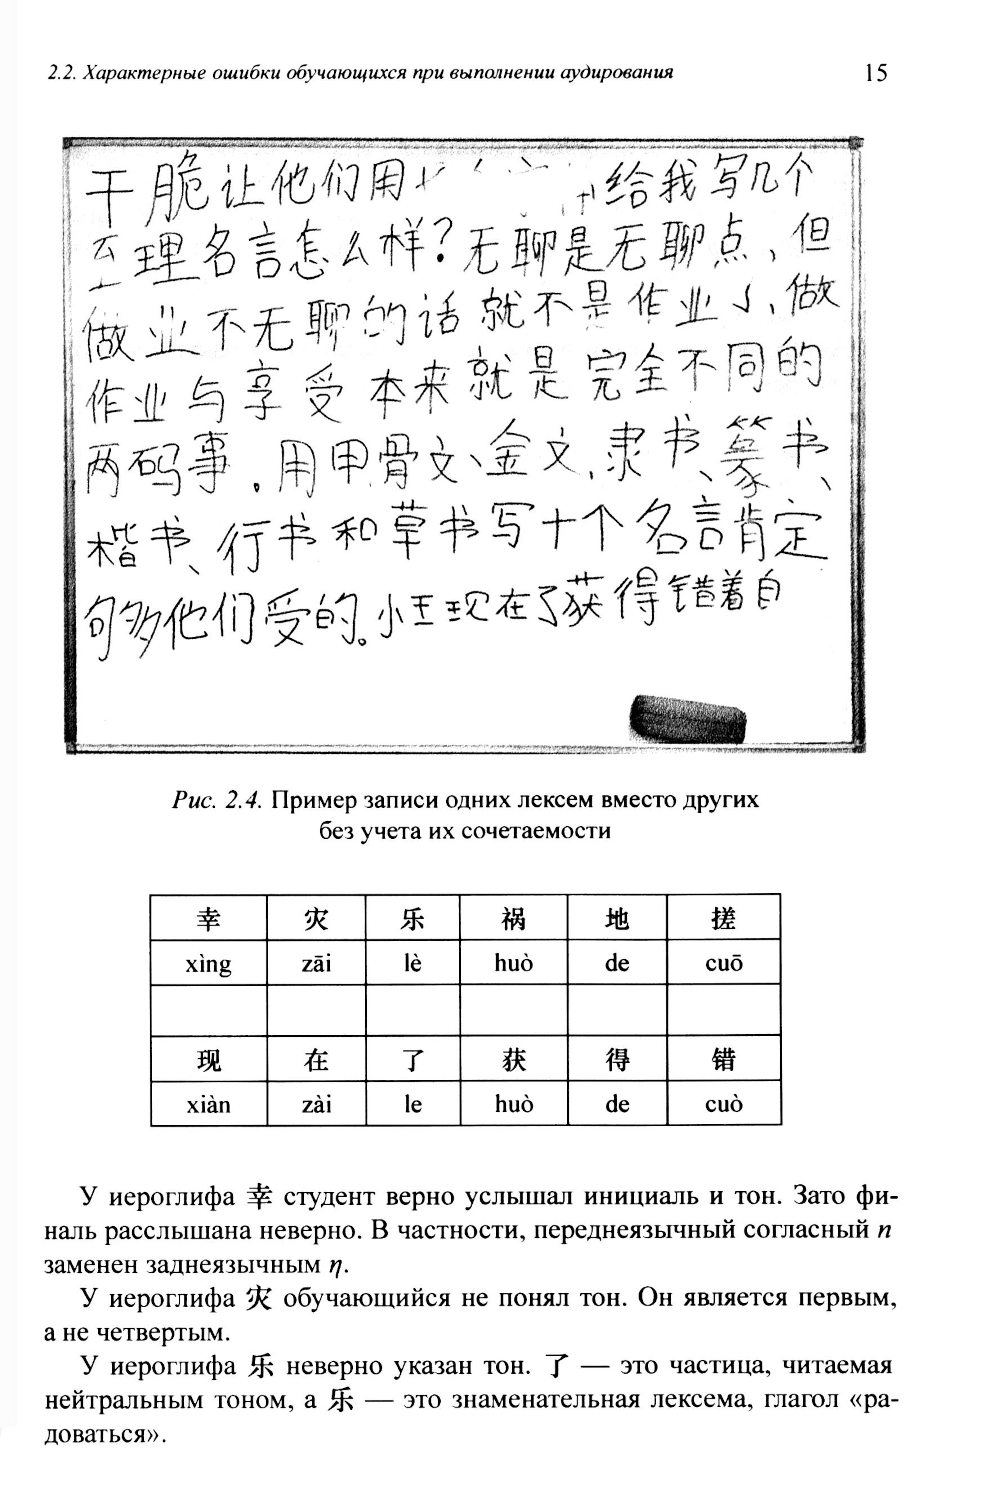 2.2. Характерные ошибки обучающихся при выполнении аудирования 15
干脆让他们用 给我写几个
至理名言怎么样?无聊是无聊点、但
做业不无聊的话就不是作业了、做
作业与享受本来就是完全不同的
两码事。用甲骨文、金文、隶书、篆书、
楷书、行书和草书写十个名言肯定
句多他们受的。小王现在了获得错着自
Рис. 2.4. Пример записи одних лексем вместо других
без учета их сочетаемости
幸 灾 乐 祸 地 搓
xìng zāi lè huò de cuō
现 在 了 获 得 错
xiàn zài le huò de cuò
У иероглифа 幸 студент верно услышал инициаль и тон. Зато фи-
наль расслышана неверно. В частности, переднеязычный согласный n
заменен заднеязычным η.
У иероглифа 灾 обучающийся не понял тон. Он является первым,
а не четвертым.
У иероглифа 乐 неверно указан тон. 了 — это частица, читаемая
нейтральным тоном, а 乐 — это знаменательная лексема, глагол «ра-
доваться».